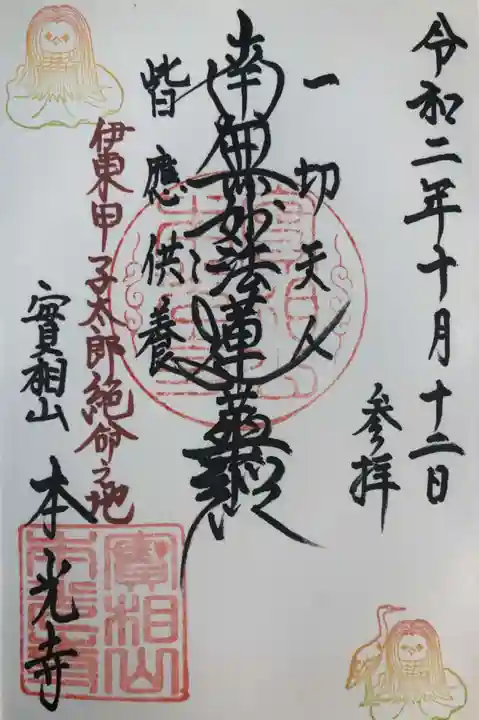 令和二年十月十二日
参拝
一切天人
南無妙法蓮華経
皆應供養
伊東甲子太郎絶命之地
實相山
本光寺
實相山